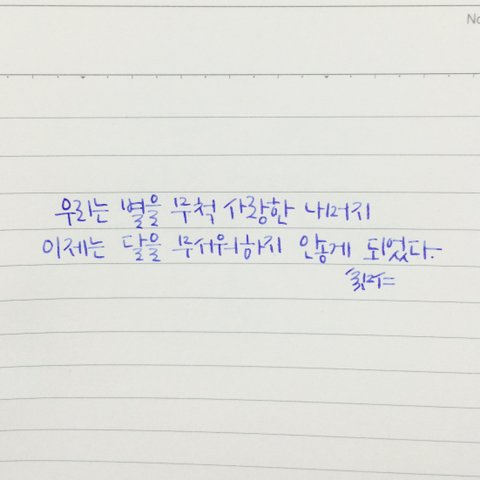 No
우리는 별을 무척 사랑한 나머지
이제는 달을 무서워하지 않게 되었다.